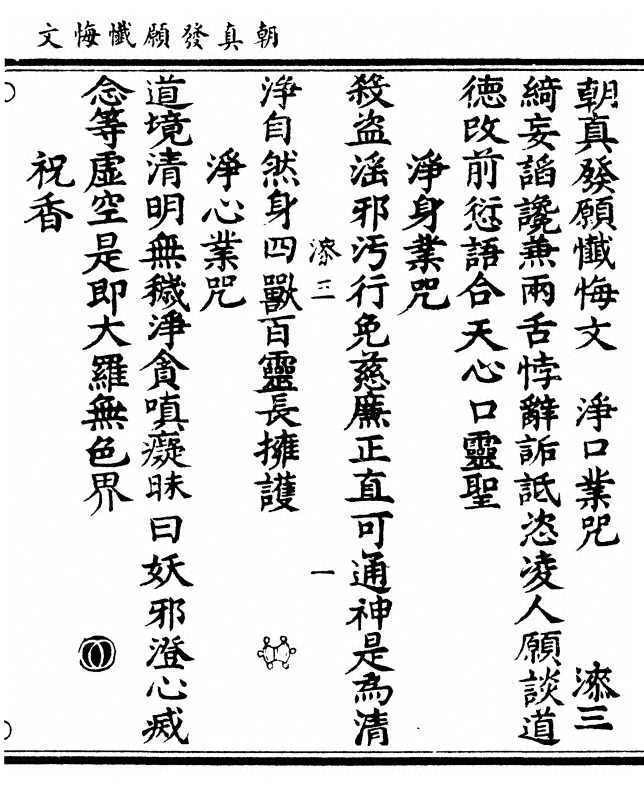 朝真發願懺悔文
朝真發願懺悔文　淨口業咒　漆三
綺妄諂讒兼兩舌悖辭詬詆恣凌人願談道
德改前愆語合天心口靈聖
淨身業咒
殺盜淫邪污行免慈廉正直可通神是為清
漆三　一
淨自然身四獸百靈長擁護
淨心業咒
道境清明無穢淨貪嗔癡昧曰妖邪澄心滅
念等虛空是即大羅無色界
祝香